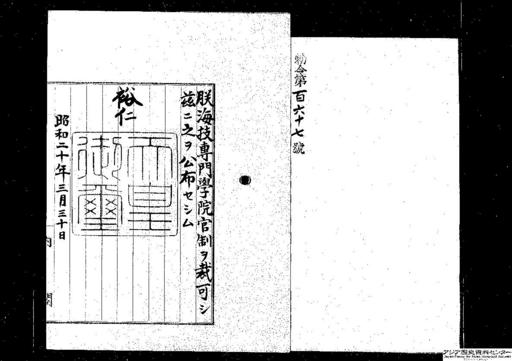 勅令第百六十七號
朕海技專門學院官制ヲ裁可シ
茲ニ之ヲ公布セシム
裕仁
天皇御璽
昭和二十年三月三十日
内閣
アジア歴史資料センター